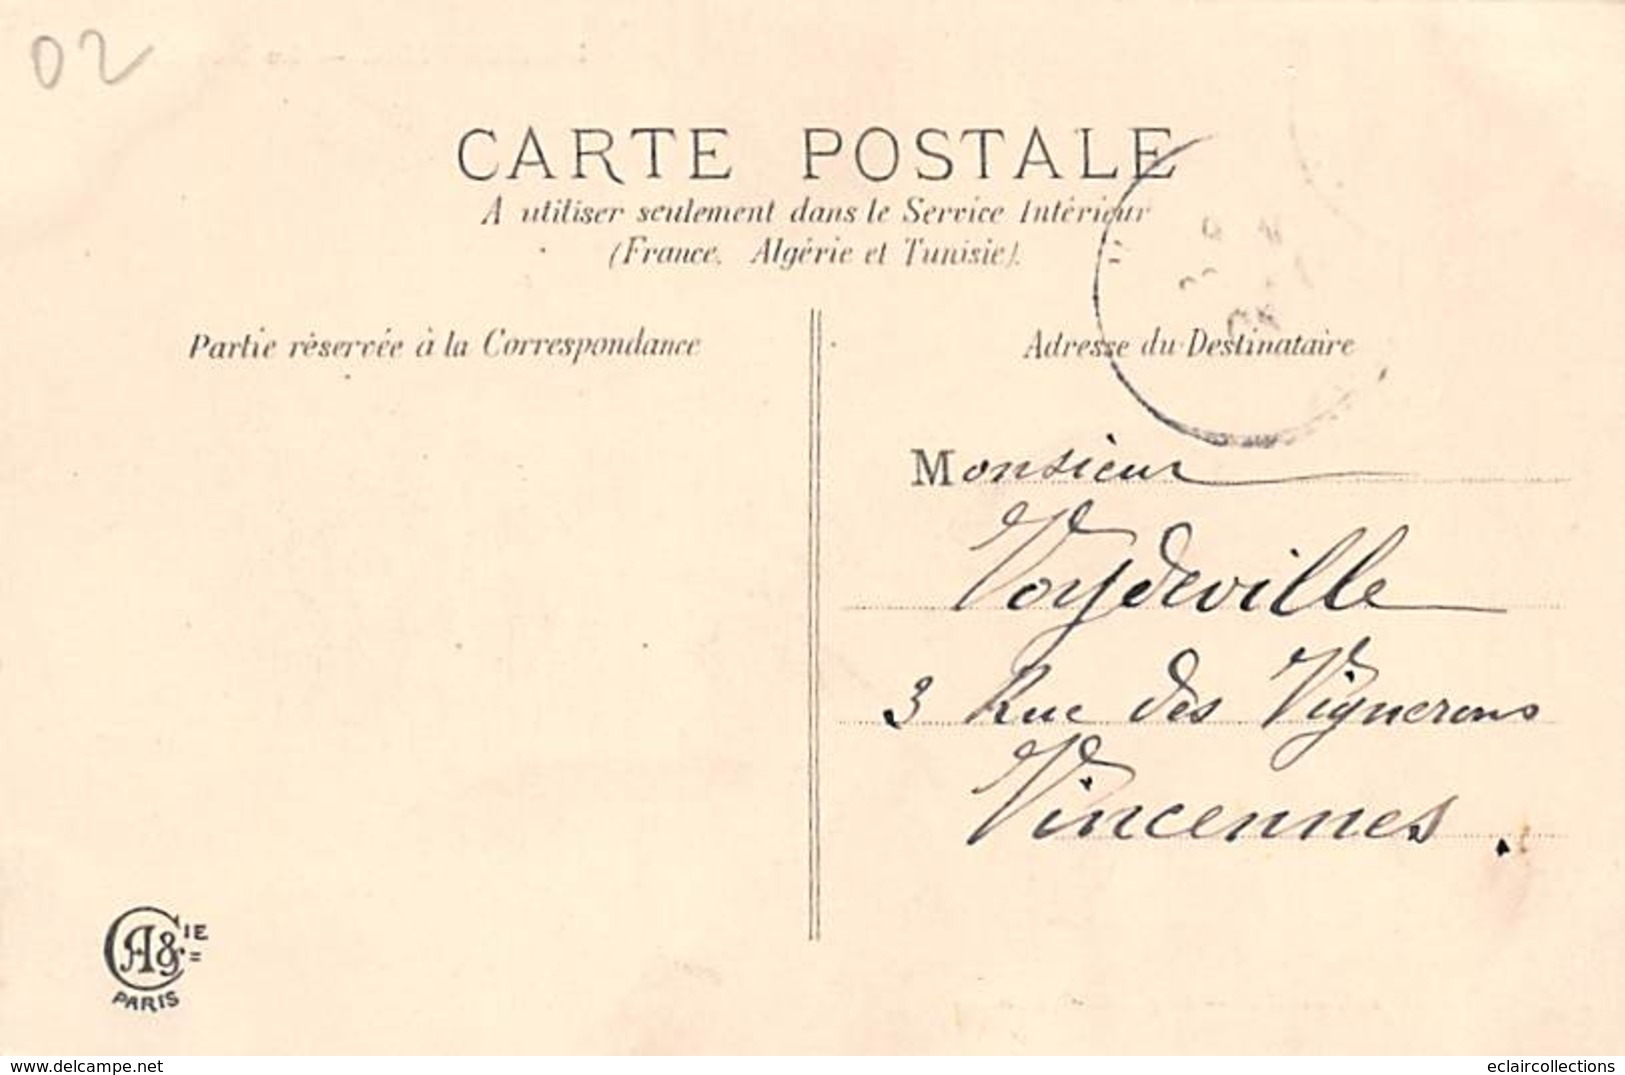 02
CARTE POSTALE
A utiliser seulement dans le Service Intérieur
(France, Algérie et Tunisie).
Partie réservée à la Correspondance
Adresse du Destinataire
Monsieur
Voydeville
3 Rue des Vignerons
Vincennes.
CA&IE
PARIS
www.delcampe.net
eclaircollections